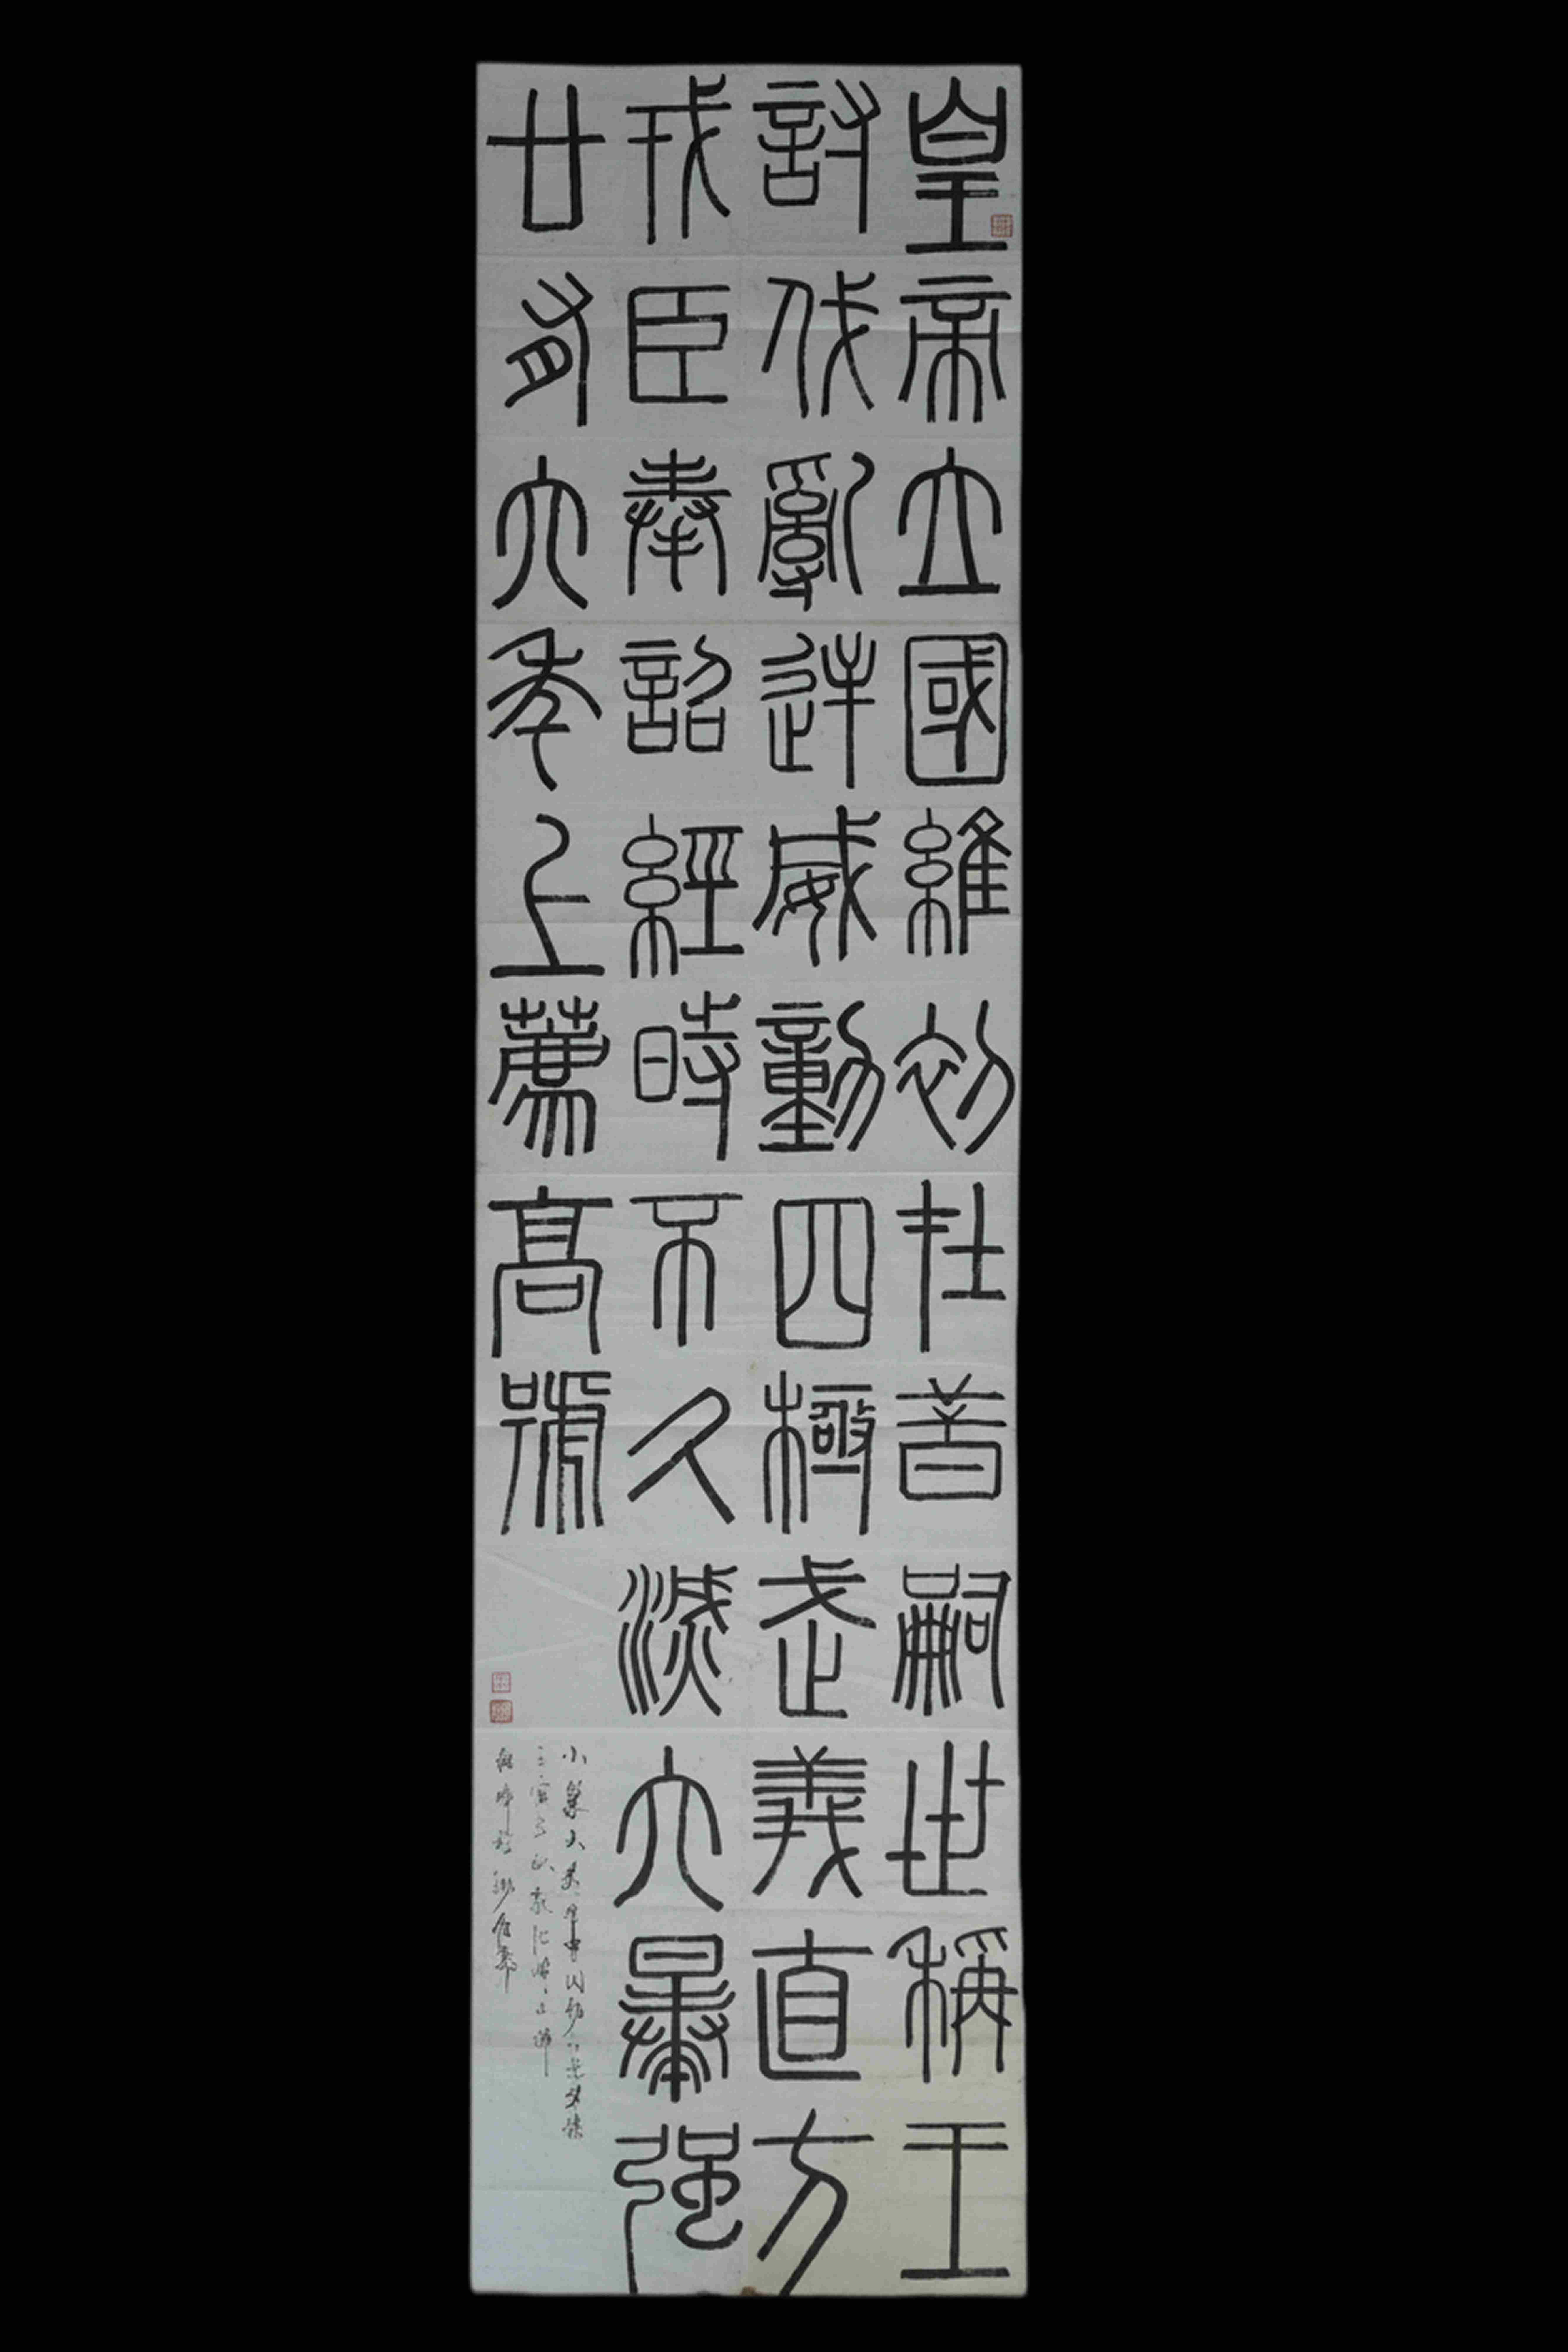 皇帝立國維初在昔嗣世稱王
討伐亂逆威動四極武義直方
戎臣奉詔經時不久滅六暴強
廿有六年上薦高號